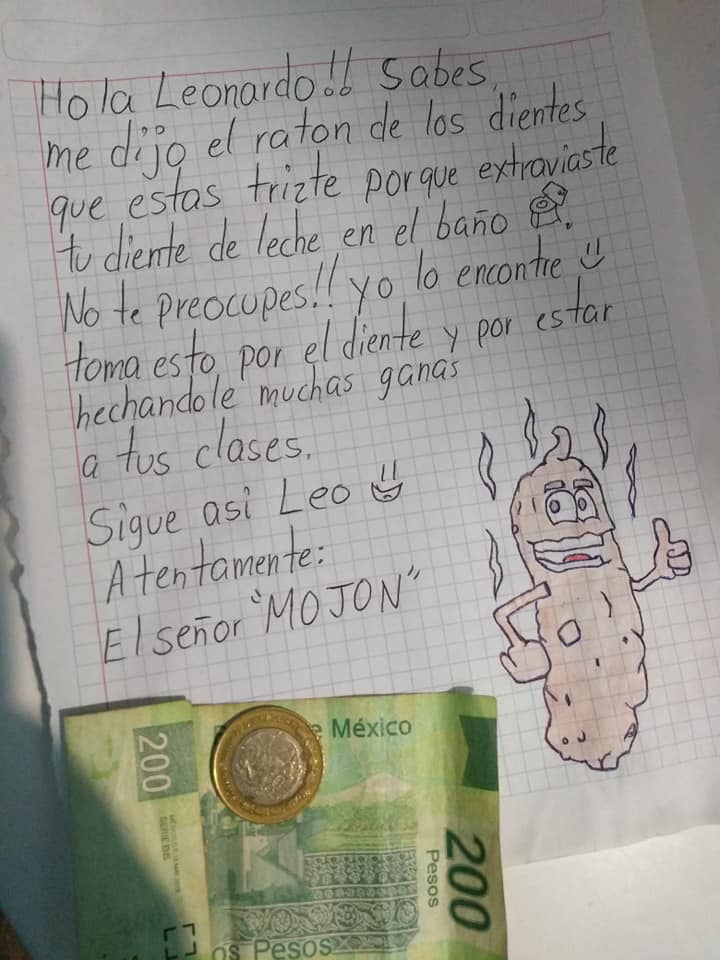 Hola Leonardo!! Sabes,
me dijo el raton de los dientes
que estas trizte porque extraviaste
tu diente de leche en el baño.
No te preocupes!! yo lo encontre
toma esto por el diente y por estar
hechandole muchas ganas
a tus clases.
Sigue asi Leo
Atentamente:
El señor "MOJON"
200
México
200
Pesos
os Pesos